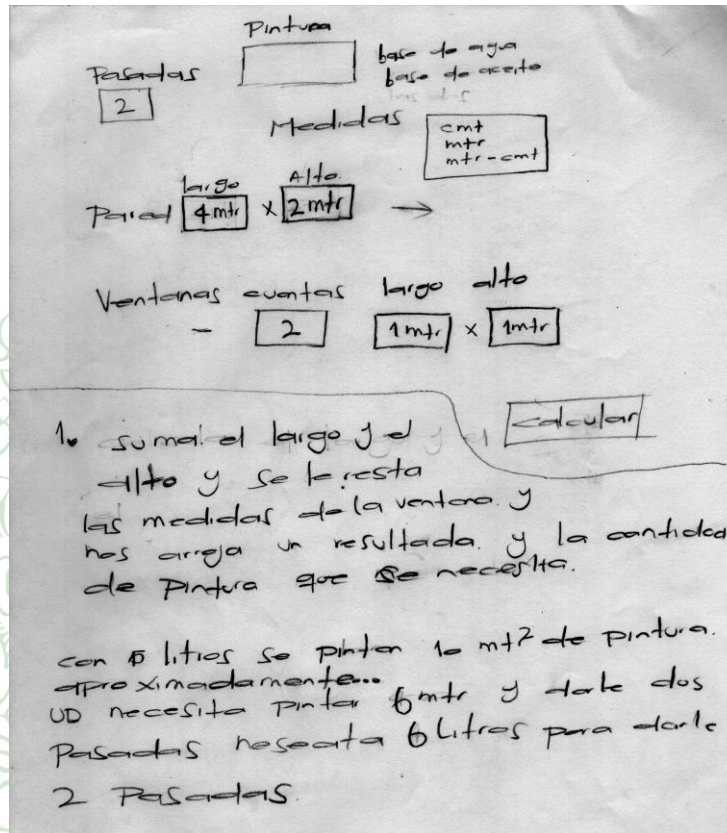 Pintura
base de agua
Pasadas
base de aceite
2
Medidas
cmt
mtr
mtr-cmt
largo Alto
Pared 4 mtr x 2 mtr →
Ventanas cuantas largo alto
- 2 1 mtr x 1 mtr
calcular
1. suma el largo y el
alto y se le resta
las medidas de la ventana y
nos arroja un resultada. y la cantidad
de Pintura que se necesita.
con 5 litros se pintan 10 mt² de pintura.
aproximadamente...
UD necesita pintar 6 mtr y darle dos
Pasadas 6 Litros para darle
2 Pasadas.